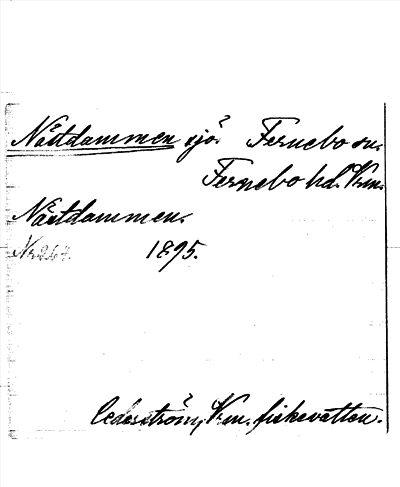 Nästdammen sjö. Fernebo sn.
Fernebo hd. Vrm.
Nästdammen.
Nr 267. 1895.
Cederström, Vrm. fiskevatten.